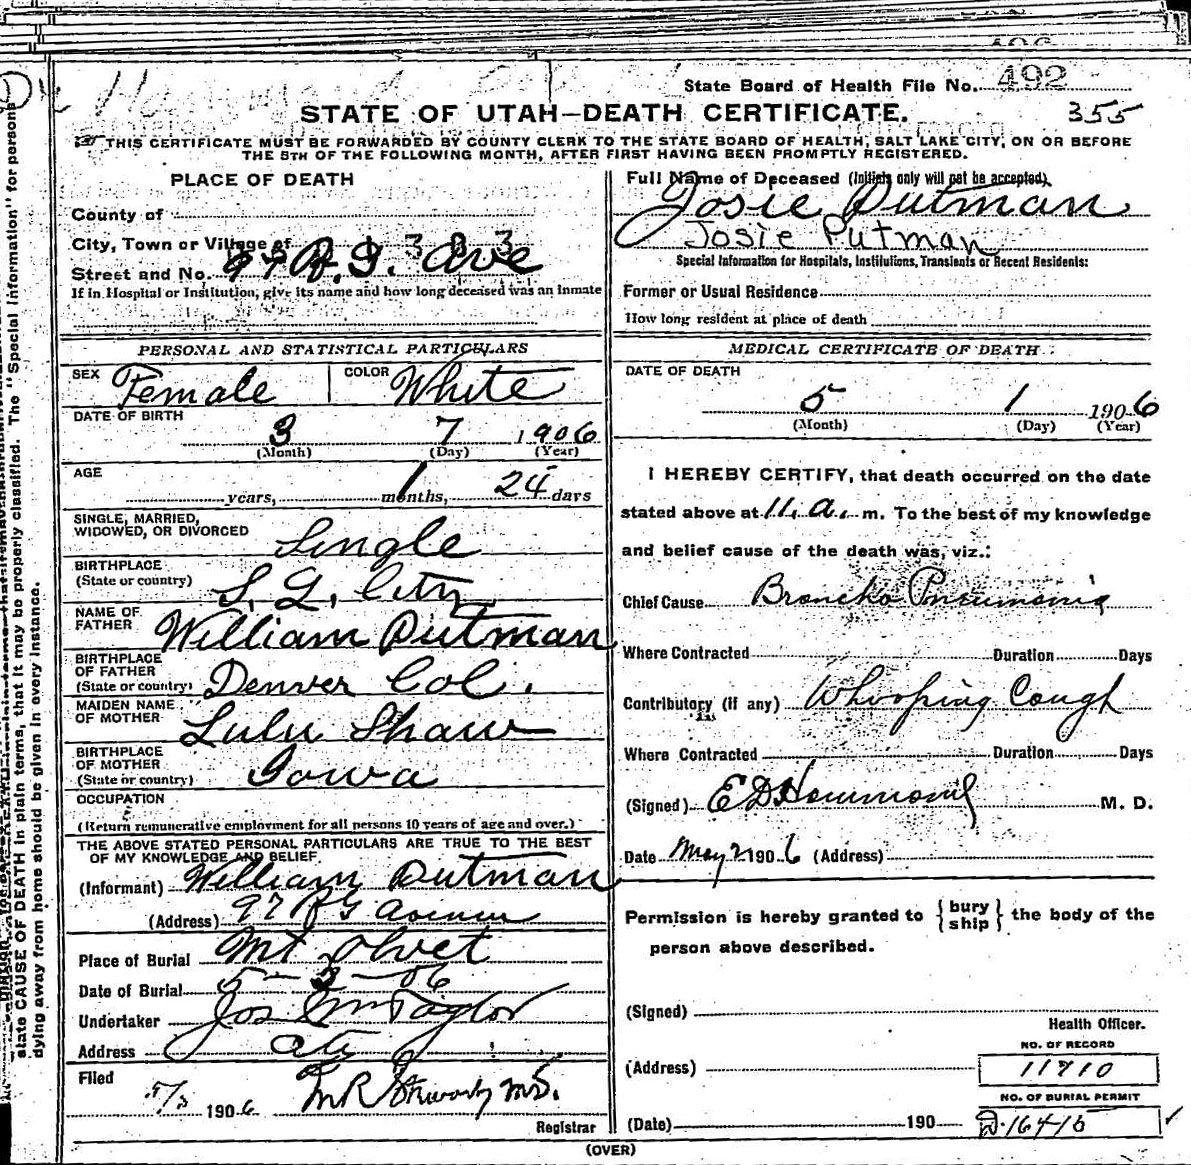 492
State Board of Health File No.
355
STATE OF UTAH—DEATH CERTIFICATE.
THIS CERTIFICATE MUST BE FORWARDED BY COUNTY CLERK TO THE STATE BOARD OF HEALTH, SALT LAKE CITY, ON OR BEFORE
THE 5TH OF THE FOLLOWING MONTH, AFTER FIRST HAVING BEEN PROMPTLY REGISTERED.
PLACE OF DEATH
County of
City, Town or Village of
Street and No. 97 R. G. Ave
If in Hospital or Institution, give its name and how long deceased was an inmate
Full Name of Deceased (Initials only will not be accepted)
Josie Putman
Josie Putman
Special Information for Hospitals, Institutions, Transients or Recent Residents:
Former or Usual Residence
How long resident at place of death
PERSONAL AND STATISTICAL PARTICULARS
SEX Female COLOR White
DATE OF BIRTH
3 7 1906
(Month) (Day) (Year)
AGE
years, 1 months, 24 days
SINGLE, MARRIED,
WIDOWED, OR DIVORCED Single
BIRTHPLACE
(State or country) S. L. City
NAME OF
FATHER William Putman
BIRTHPLACE
OF FATHER
(State or country) Denver Col.
MAIDEN NAME
OF MOTHER Lulu Shaw
BIRTHPLACE
OF MOTHER
(State or country) Iowa
OCCUPATION
(Return remunerative employment for all persons 10 years of age and over.)
THE ABOVE STATED PERSONAL PARTICULARS ARE TRUE TO THE BEST
OF MY KNOWLEDGE AND BELIEF
(Informant) William Putman
(Address) 97 R G Avenue
Place of Burial Mt Olivet
Date of Burial 5-3-06
Undertaker Jos Wm Taylor
Address City
Filed
5/3 1906
M R Stewart M.D.
Registrar
MEDICAL CERTIFICATE OF DEATH
DATE OF DEATH
5 1 1906
(Month) (Day) (Year)
I HEREBY CERTIFY, that death occurred on the date
stated above at 11. a. m. To the best of my knowledge
and belief cause of the death was, viz.:
Chief Cause Broncho Pneumonia
Where Contracted Duration Days
Contributory (if any) Whooping Cough
Where Contracted Duration Days
(Signed) E D Hammond M. D.
Date May 2 1906 (Address)
Permission is hereby granted to { bury ship } the body of the
person above described.
(Signed)
Health Officer.
NO. OF RECORD
(Address) 11710
NO. OF BURIAL PERMIT
(Date) 190 D.16415
(OVER)
state CAUSE OF DEATH in plain terms, that it may be properly classified. The "Special Information" for persons
dying away from home should be given in every instance.